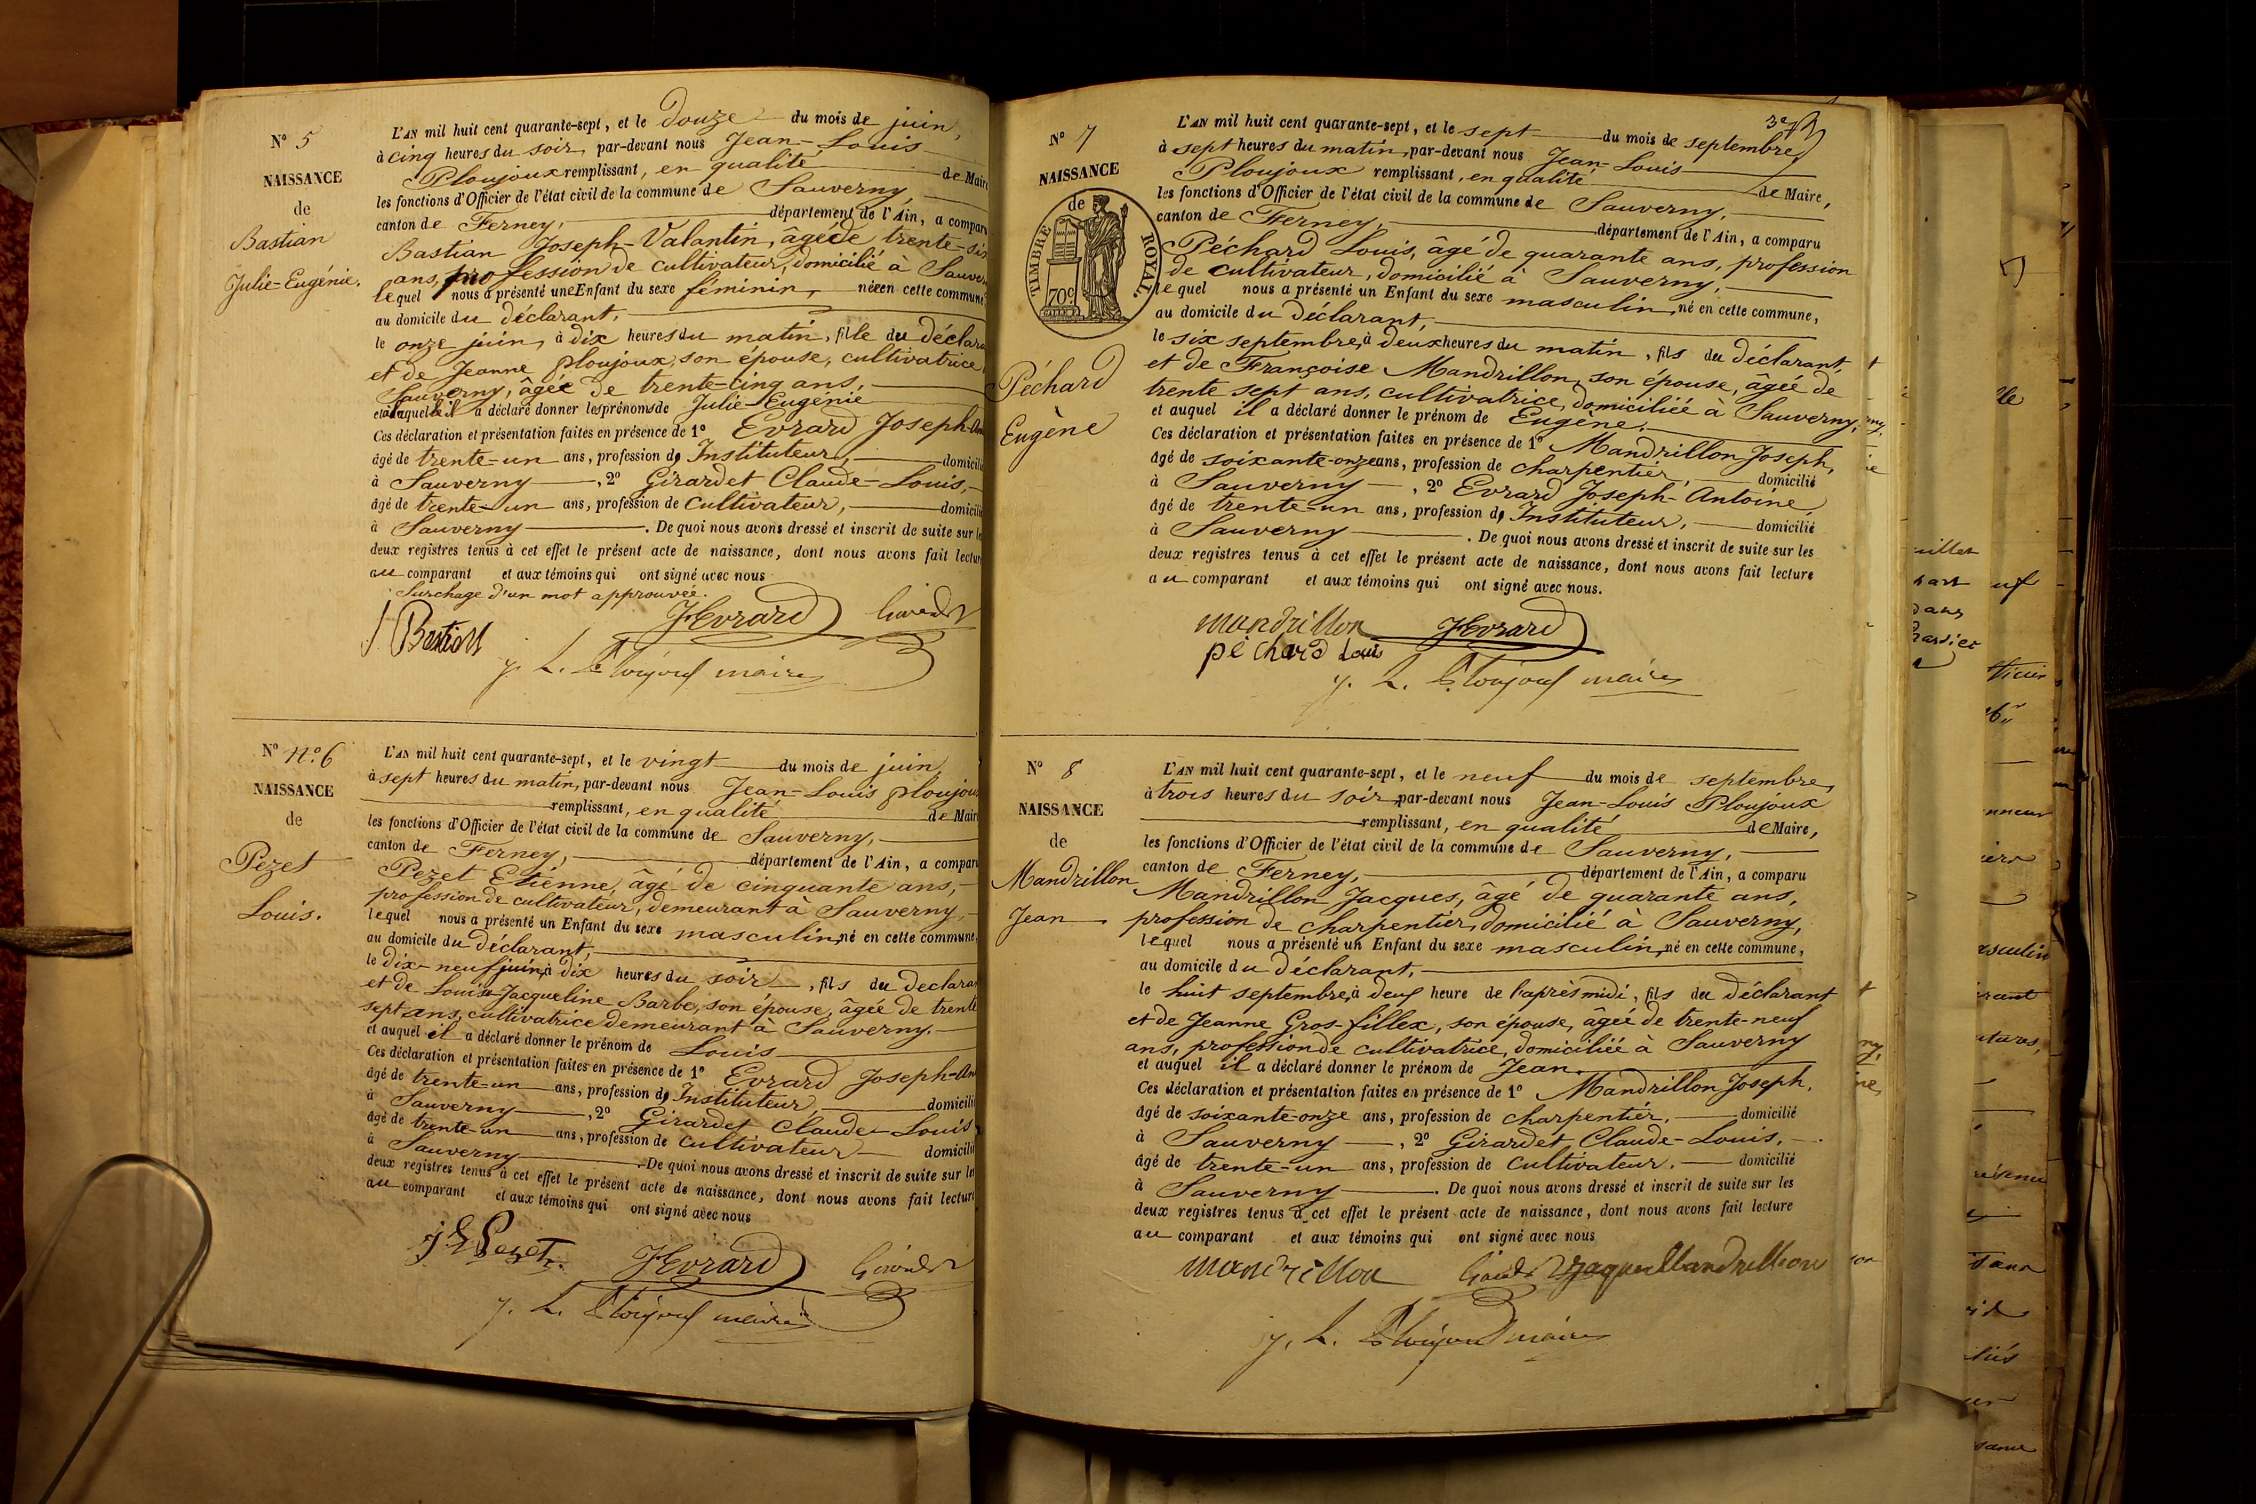 N° 5
NAISSANCE
de
Bastian
Julie-Eugénie.
L'AN mil huit cent quarante-sept, et le douze du mois de juin,
à cinq heures du soir, par-devant nous Jean-Louis
Ploujoux remplissant, en qualité de Maire
les fonctions d'Officier de l'état civil de la commune de Sauverny,
canton de Ferney, département de l'Ain, a comparu
Bastian Joseph-Valantin, âgé de trente-six
ans, profession de cultivateur, domicilié à Sauver
lequel nous a présenté une Enfant du sexe féminin, née en cette commune
au domicile du déclarant,
le onze juin, à dix heures du matin, fille du déclara
et de Jeanne ploujoux, son épouse, cultivatrice
Sauverny, âgée de trente-cinq ans,
et à laquelle il a déclaré donner les prénoms de Julie-Eugénie
Ces déclaration et présentation faites en présence de 1° Evrard Joseph-An
âgé de trente-un ans, profession d' Instituteur, domicilié
à Sauverny, 2° Girardet Claude-Louis,
âgé de trente-un ans, profession de cultivateur, domicilié
à Sauverny. De quoi nous avons dressé et inscrit de suite sur le
deux registres tenus à cet effet le présent acte de naissance, dont nous avons fait lecture
au comparant et aux témoins qui ont signé avec nous
Surchage d'un mot approuvée.
JEvrard Girardet
J Bastian
J. L. Ploujoux maire
N° n°. 6
NAISSANCE
de
Pezet
Louis.
L'AN mil huit cent quarante-sept, et le vingt du mois de juin,
à sept heures du matin, par-devant nous Jean-Louis ploujoux
remplissant, en qualité de Maire
les fonctions d'Officier de l'état civil de la commune de Sauverny,
canton de Ferney, département de l'Ain, a comparu
Pezet Etienne, âgé de cinquante ans,
profession de cultivateur, demeurant à Sauverny,
lequel nous a présenté un Enfant du sexe masculin, né en cette commune,
au domicile du déclarant,
le dix-neuf juin, à dix heures du soir, fils du declaran
et de Louise-Jacqueline Barbe, son épouse, âgée de trente
sept ans, cultivatrice demeurant à Sauverny.
et auquel il a déclaré donner le prénom de Louis
Ces déclaration et présentation faites en présence de 1° Evrard Joseph-An
âgé de trente-un ans, profession d' Instituteur, domicilié
à Sauverny, 2° Girardet Claude-Louis
âgé de trente-un ans, profession de cultivateur domicilié
à Sauverny. De quoi nous avons dressé et inscrit de suite sur le
deux registres tenus à cet effet le présent acte de naissance, dont nous avons fait lecture
au comparant et aux témoins qui ont signé avec nous
JEvrard Girardet
J. L. Ploujoux maire
N° 7
NAISSANCE
de
TIMBRE ROYAL
70c
Péchard
Eugène
L'AN mil huit cent quarante-sept, et le sept du mois de septembre,
à sept heures du matin, par-devant nous Jean-Louis
Ploujoux remplissant, en qualité de Maire,
les fonctions d'Officier de l'état civil de la commune de Sauverny,
canton de Ferney, département de l'Ain, a comparu
Péchard Louis, âgé de quarante ans, profession
de cultivateur, domicilié à Sauverny,
lequel nous a présenté un Enfant du sexe masculin, né en cette commune,
au domicile du déclarant,
le six septembre, à deux heures du matin, fils du déclarant,
et de Françoise Mandrillon, son épouse, âgée de
trente sept ans, cultivatrice, domiciliée à Sauverny,
et auquel il a déclaré donner le prénom de Eugène.
Ces déclaration et présentation faites en présence de 1° Mandrillon Joseph,
âgé de soixante-onze ans, profession de charpentier, domicilié
à Sauverny, 2° Evrard Joseph-Antoine,
âgé de trente-un ans, profession d' Instituteur, domicilié
à Sauverny. De quoi nous avons dressé et inscrit de suite sur les
deux registres tenus à cet effet le présent acte de naissance, dont nous avons fait lecture
au comparant et aux témoins qui ont signé avec nous.
Mandrillon JEvrard
péchard Louis
J. L. Ploujoux maire
N° 8
NAISSANCE
de
Mandrillon
Jean
L'AN mil huit cent quarante-sept, et le neuf du mois de septembre,
à trois heures du soir, par-devant nous Jean-Louis Ploujoux
remplissant, en qualité de Maire,
les fonctions d'Officier de l'état civil de la commune de Sauverny,
canton de Ferney, département de l'Ain, a comparu
Mandrillon Jacques, âgé de quarante ans,
profession de charpentier, domicilié à Sauverny,
lequel nous a présenté un Enfant du sexe masculin, né en cette commune,
au domicile du déclarant,
le huit septembre, à deux heure de l'après midi, fils du déclarant
et de Jeanne Gros-fillex, son épouse, âgée de trente-neuf
ans, profession de cultivatrice, domiciliée à Sauverny
et auquel il a déclaré donner le prénom de Jean.
Ces déclaration et présentation faites en présence de 1° Mandrillon Joseph,
âgé de soixante-onze ans, profession de charpentier, domicilié
à Sauverny, 2° Girardet Claude-Louis,
âgé de trente-un ans, profession de cultivateur, domicilié
à Sauverny. De quoi nous avons dressé et inscrit de suite sur les
deux registres tenus à cet effet le présent acte de naissance, dont nous avons fait lecture
au comparant et aux témoins qui ont signé avec nous
Mandrillon Girardet Jaques Mandrillon
J. L. Ploujoux maire